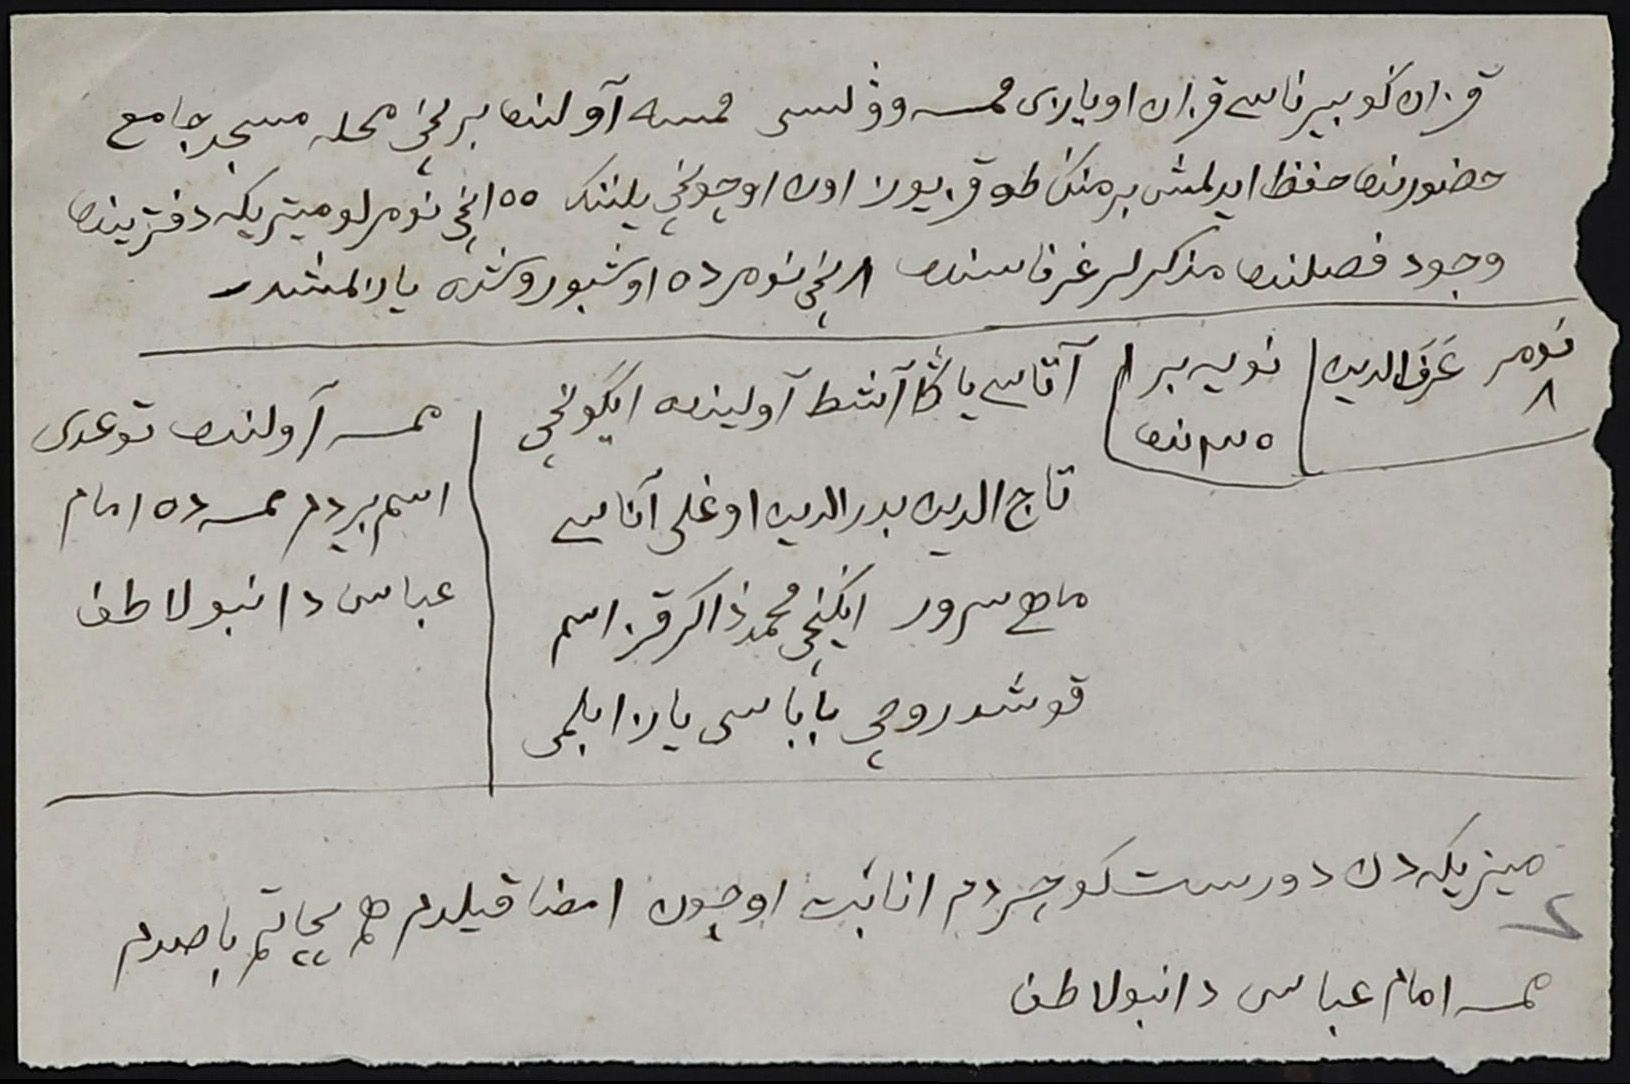 قزان کوبیرناسے قزان اویازی ممسه وولسی ممسه آولندہ برنچی محله مسجد جامع
حضورندہ حفظ ایدلمش برمنک طوقزیوز اون اوچونچی یلننک ٥٥ انچی نومرلو میتریکه دفترینده
وجود فصلندہ مذکرلر غرفاسندہ ٨ نچی نومرده اوشبو روشده یازلمشدر
نومر ٨
عرف الدین
نویه بر
آتاسے یاڭا آشط آولینده ایکونچی
تاج الدین بدرالدین اوغلی آناسے
سرور ایکنچی محمدذاکر قز اسم
قوشدروچی باباسی یازا بلمی
ممسه آولندہ توغدی
اسم بیردم ممسه ده امام
عباس دانبولاطف
میتریکه دن دورست کوچردم اثابت اوچون امضا قیلدم هم پیچاتم باصدم
ممسه امام عباس دانبولاطف